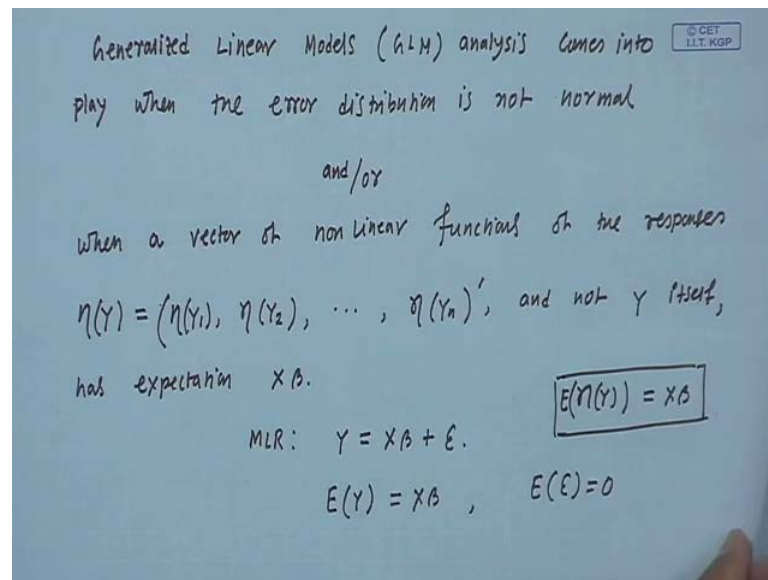 Generalized Linear Models (GLM) analysis comes into
© CET
I.I.T. KGP
play when the error distribution is not normal
and/or
when a vector of non linear functions of the responses
η(Y) = (η(Y₁), η(Y₂), ⋯, η(Yₙ)′, and not Y itself,
has expectation Xβ.
E(η(Y)) = Xβ
MLR: Y = Xβ + ε.
E(Y) = Xβ , E(ε)=0